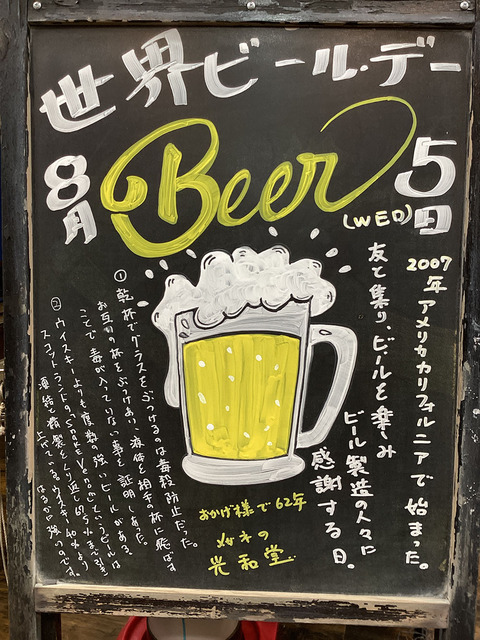 世界ビール・デー
8月
Beer
5日
(WED)
2007年アメリカカリフォルニアで始まった。
友と集り、ビールを楽しみ
ビール製造の人々に
感謝する日。
① 乾杯でグラスをぶつけるのは毒殺防止だった。
お互いの杯をぶつけあい、液体を相手の杯に飛ばす
ことで毒が入っていない事を証明しあった。
② ウイスキーよりも度数の強いビールがある。
スコットランドの「Snake Venom」というビールは
凍結と精製をくり返し67.5%まで引き
上げている。ウイスキーの40%より
はるか強いのです。
おかげ様で62年
メガネの
光和堂